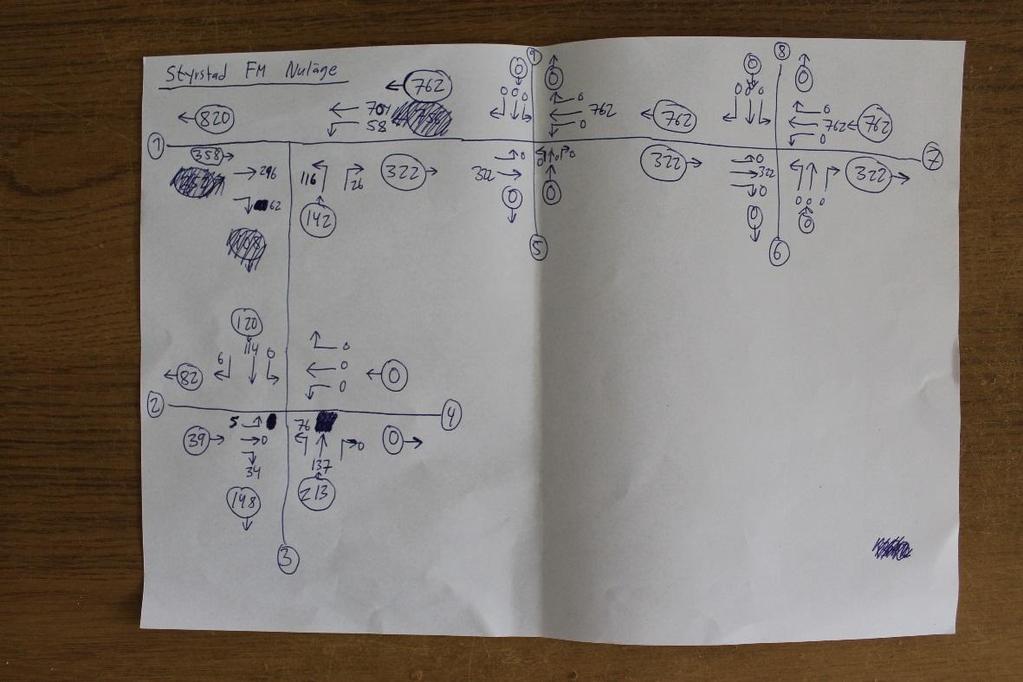 Styrstad FM Nuläge
762
820
704
58
762
762
762
762
0
0
0 0 0
0
0
0
0
0 0 0
0
0
1
9
8
7
358
296
62
116
26
142
322
322
0
0
0
0 0 0
0
322
0
322
0
0
322
0 0 0
0
5
6
120
6 114 0
82
0
0
0
0
2
4
39
5
0
34
198
76
137
0
213
0
3